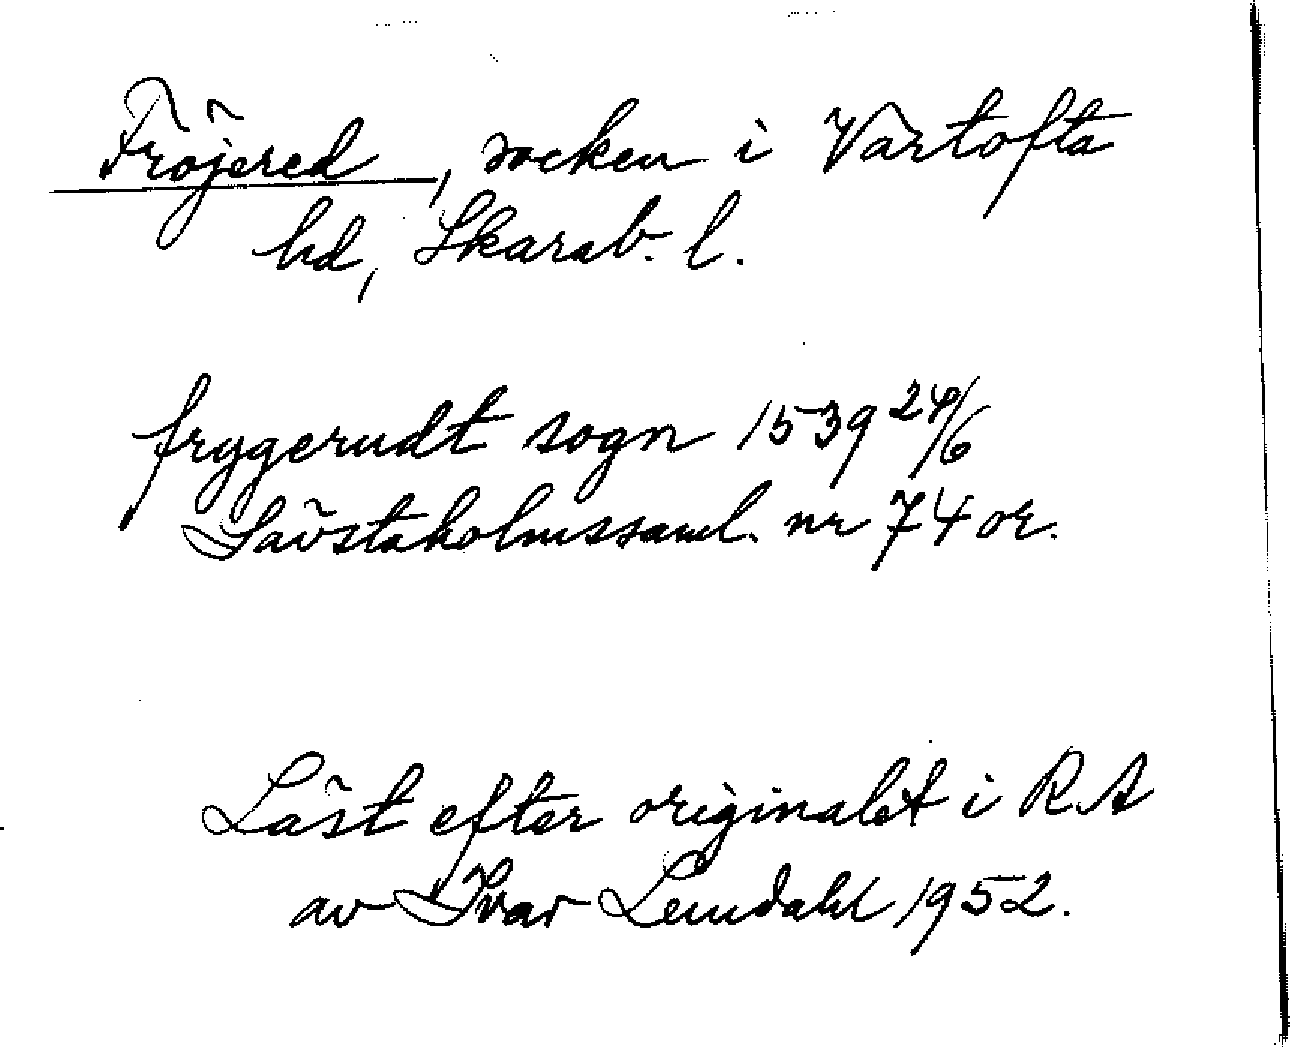 Fröjered, socken i Vartofta
hd, Skarab. l.
frygerudt sogn 1539 24/6
Sävstaholmssaml. nr 74 or.
Läst efter originalet i RA
av Ivar Lundahl 1952.